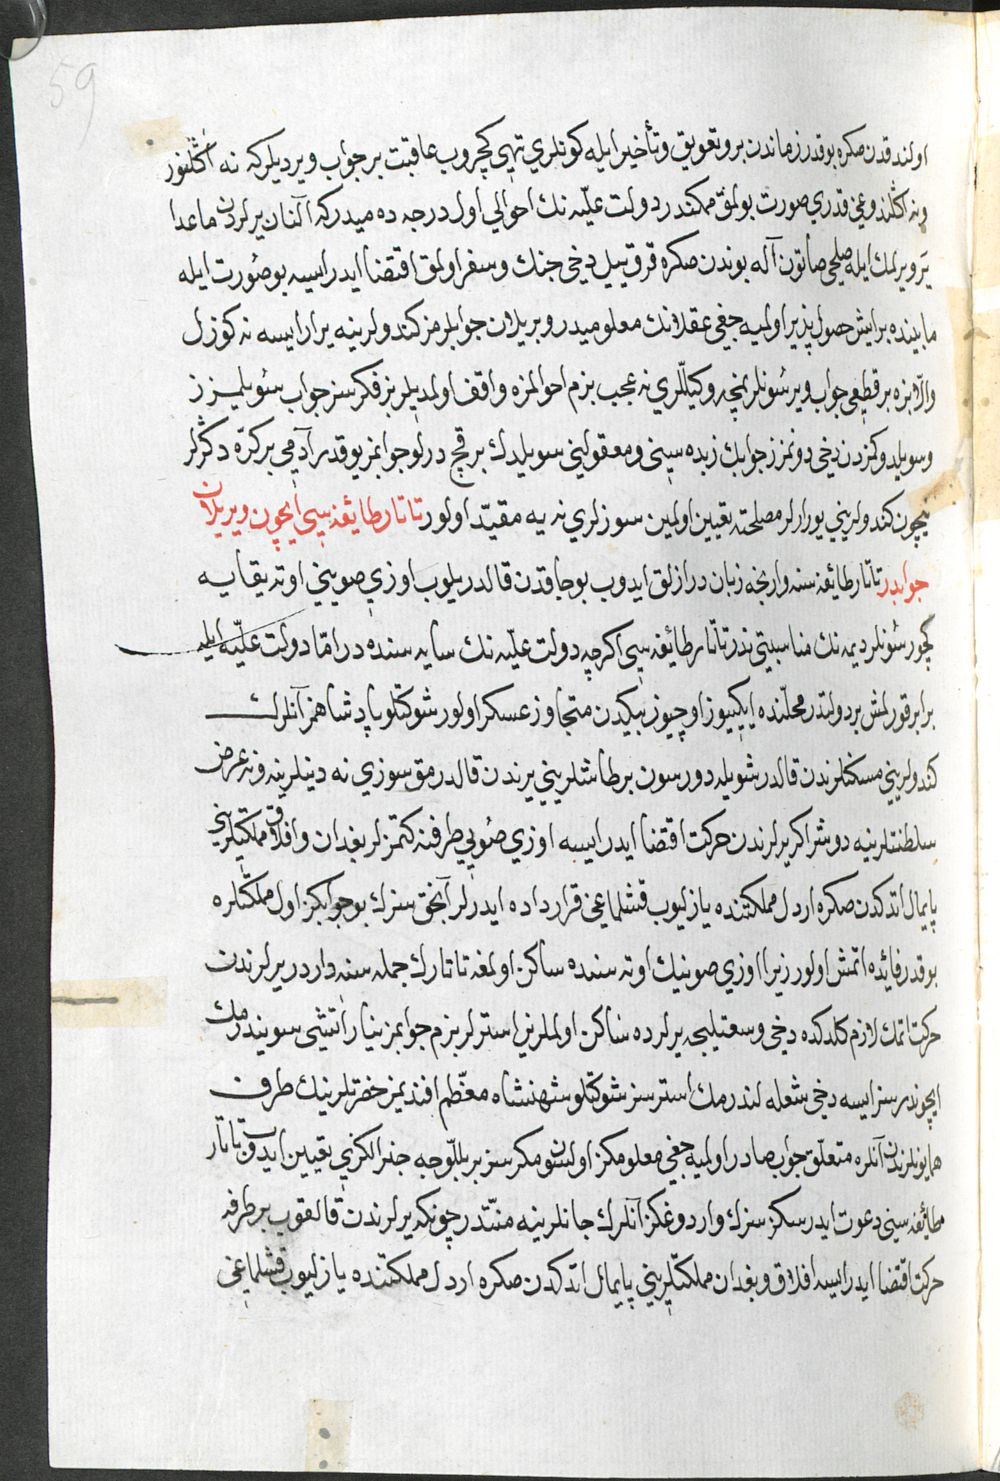 59
اولندقدن صكره بوقدر زماندن برو تعويق و تأخير ايله كونلري تهي كچروب عاقبت بر جواب ويرديلركه نه اڭلنور
ونه اڭلندوغي قدري صورت بولمق ممكندر دولت عليّه نك احوالي اول درجه ده ميدركه آلنان يرلردن ماعدا
ير ويرلمك ايله صلحي صاتون آله بوندن صكره قرق ييل دخي جنك و سفر اولمق اقتضا ايدر ايسه بو صورت ايله
مابينده بر ايش حصول پذير اولميه جغي عقلانك معلوميدر ويريلان جوابلرمز كندولرينه يرار ايسه نه كوزل
والّا بزه بر قطعي جواب ويرسونلر نمچه وكيللري نه عجب بزم احوالمزه واقف اولمديلر بز فكرسز جواب سويلمزز
وسويلدوكزدن دخي دونمزز جوابك زبده سيني و معقوليني سويلدك بر قچ درلو جوابمز يوقدر آدمي بر كرّه دڭرلر
نيچون كندولريني يورارلر مصلحته يقيين اولمين سوزلري نه يه مقيّد اولور تاتار طائفه سي ايچون ويريلان
جوابدر تاتار طائفه سنه وارنجه زبان درازلق ايدوب بوجاقدن قالدريلوب اوزي صويني اوته يقايه
كچورسونلر ديمه نك مناسبتي ندر تاتار طائفه سي اكرچه دولت عليّه نك سايه سنده در امّا دولت عليّه ايله
برابر قورلمش بر دولتدر محلّنده ايكييوز اوچيوز بيكدن متجاوز عسكر اولور شوكتلو پادشاهمز آنلرك
كندولريني مسكنلرندن قالدر شويله دورسون بر طاشلريني يرندن قالدرمق سوزي نه دينلرينه ونه عرض
سلطنتلرينه دوشر اكر يرلرندن حركت اقتضا ايدر ايسه اوزي صويي طرفنه كتمزلر بغدان و افلاق مملكتلريني
پايمال اتدكدن صكره اردل مملكتنده يازليوب قشلماغي قرارداده ايدرلر آنجق سزك بو جوابكز اول مملكتلره
بوقدر فائده اتمش اولور زيرا اوزي صوينيك اوته سنده ساكن اولمغه تاتارك جمله سنه واردر يرلرندن
حركت اتمك لازم كلدكده دخي وسعتليجه يرلرده ساكن اولملريني استرلر بزم جوابمز بنيار آتشي سويندرمك
ايچوندر سز ايسه دخي شعله لندرمك استرسز شوكتلو شهنشاه معظّم افنديمز حضرتلرينك طرف
همايونلرندن آنلره متعلّق جواب صادر اولميه جغي معلومكز اولسون مكر سز بر بللّوجه جنرالكزي يقيين ايدوب تاتار
طائفه سيني دعوت ايدرسكز سزك واردوغكز آنلرك جانلرينه منّتدر چونكه يرلرندن قالقوب بر طرفه
حركت اقتضا ايدر ايسه افلاق و بغدان مملكتلريني پايمال اتدكدن صكره اردل مملكتنده يازليوب قشلماغي